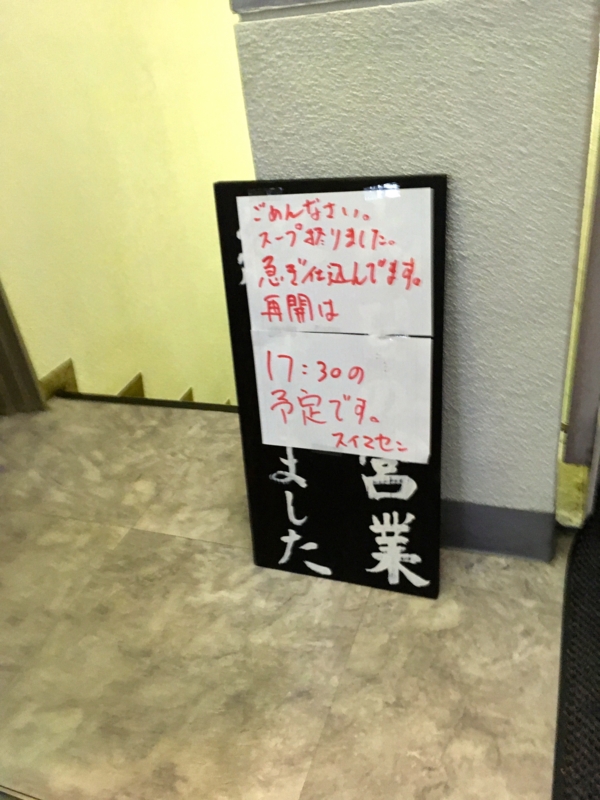 ごめんなさい。
スープ切りました。
急ぎ仕込んでます。
再開は
17:30の
予定です。
スイマセン
営業
ました